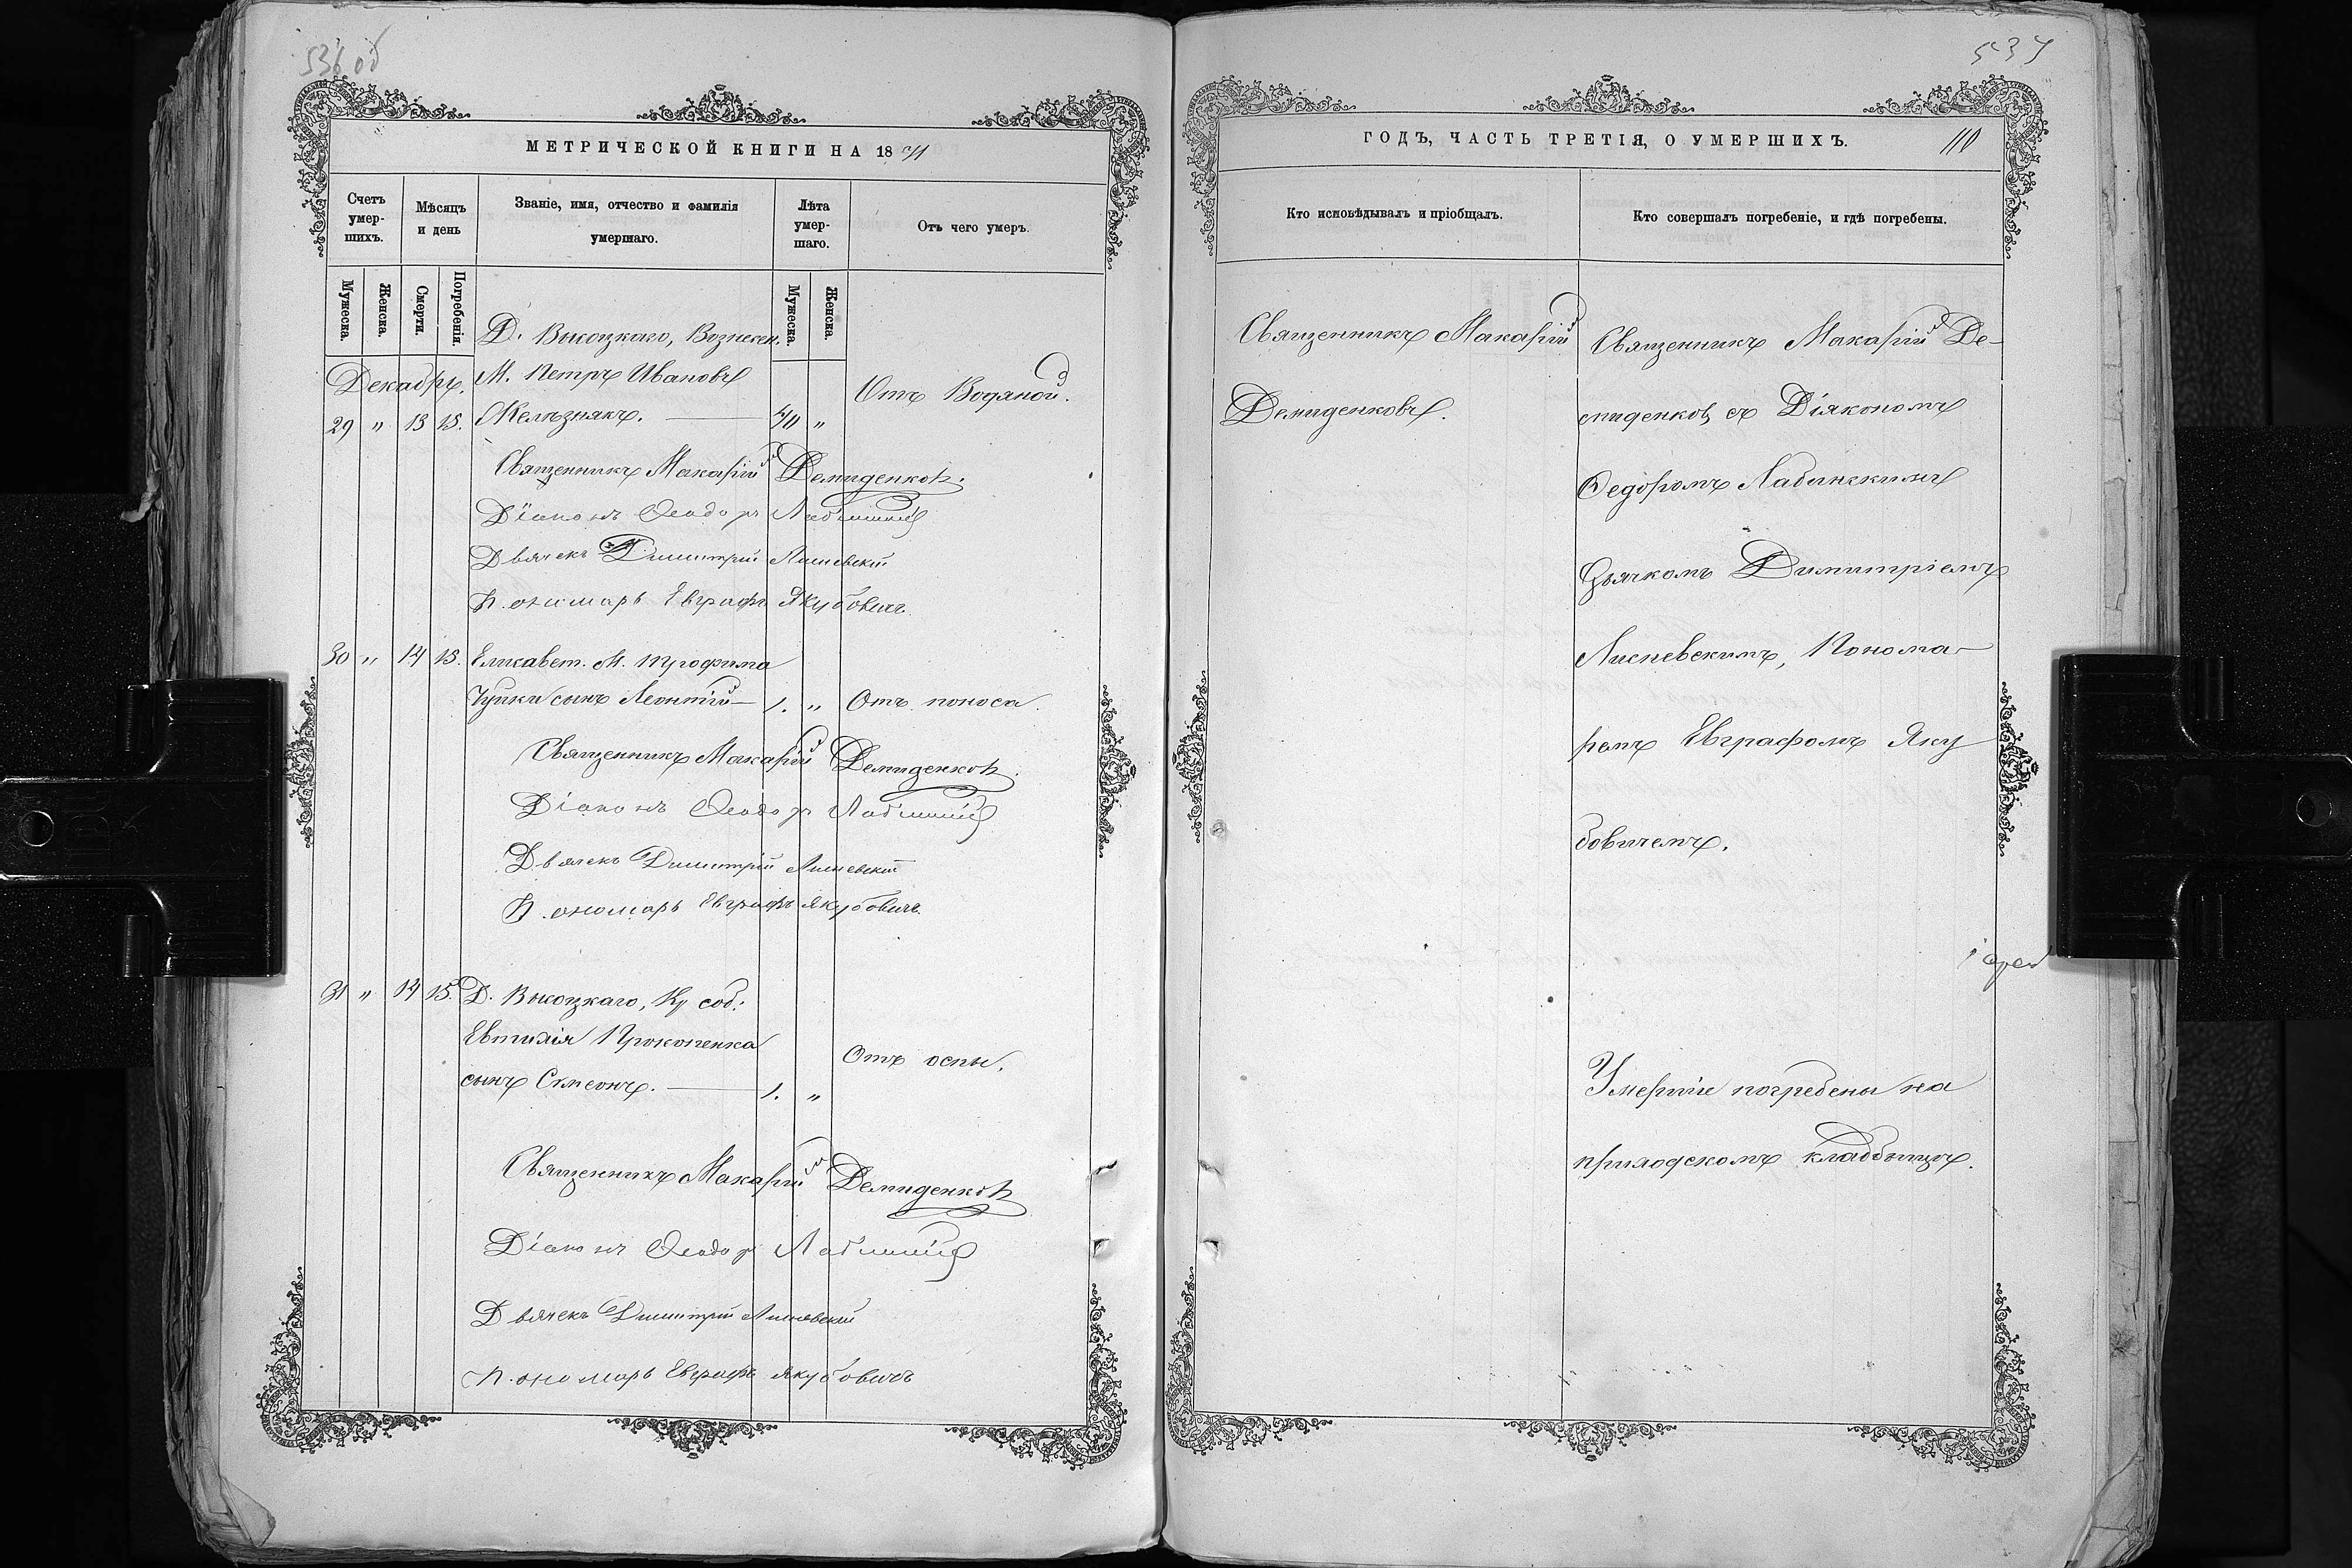 536 об
МЕТРИЧЕСКОЙ КНИГИ НА 18
Счетъ умер-шихъ.
Мѣсяцъ и день
Званіе, имя, отчество и фамилія умершаго.
Лѣта умер-шаго.
Отъ чего умеръ.
Мужеска.
Женска.
Смерти.
Погребенія.
Мужеска.
Женска.
Д. Высоцкаго, Вознесен.
Декабрь. М. Петръ Ивановъ
Отъ Водяной.
29 " 13 15. Желѣзнякъ. — 40 "
Священникъ Макарій Демиденковъ.
Діаконъ Ѳеодоръ
Дьячекъ Димитрій Лисневскій
Пономарь Евграфъ Якубовичъ
30 " 14 15. Елисавет. М. Трофима
Чупки сынъ Леонтій — 1. " Отъ поноса.
Священникъ Макарій Демиденковъ.
Діаконъ Ѳеодоръ
Дьячекъ Димитрій Лисневскій
Пономарь Евграфъ Якубовичъ.
31 " 14 15. Д. Высоцкаго, Ку соб.
Евтихія Прокопенка
Отъ оспы.
сынъ Симеонъ. — 1. "
Священникъ Макарій Демиденковъ
Діаконъ Ѳеодоръ
Дьячекъ Димитрій Лисневскій
Пономарь Евграфъ Якубовичъ
537
ГОДЪ, ЧАСТЬ ТРЕТІЯ, О УМЕРШИХЪ.
110
Кто исповѣдывалъ и пріобщалъ.
Кто совершалъ погребеніе, и гдѣ погребены.
Священникъ Макарій
Демиденковъ.
Священникъ Макарій Де-
миденковъ, съ Діякономъ
Ѳедоромъ Лабинскимъ
Дьячкомъ Димитріемъ
Лисневскимъ, Понома-
ремъ Евграфомъ Яку
бовичемъ.
Умершіе погребены на
приходскомъ кладбищѣ.